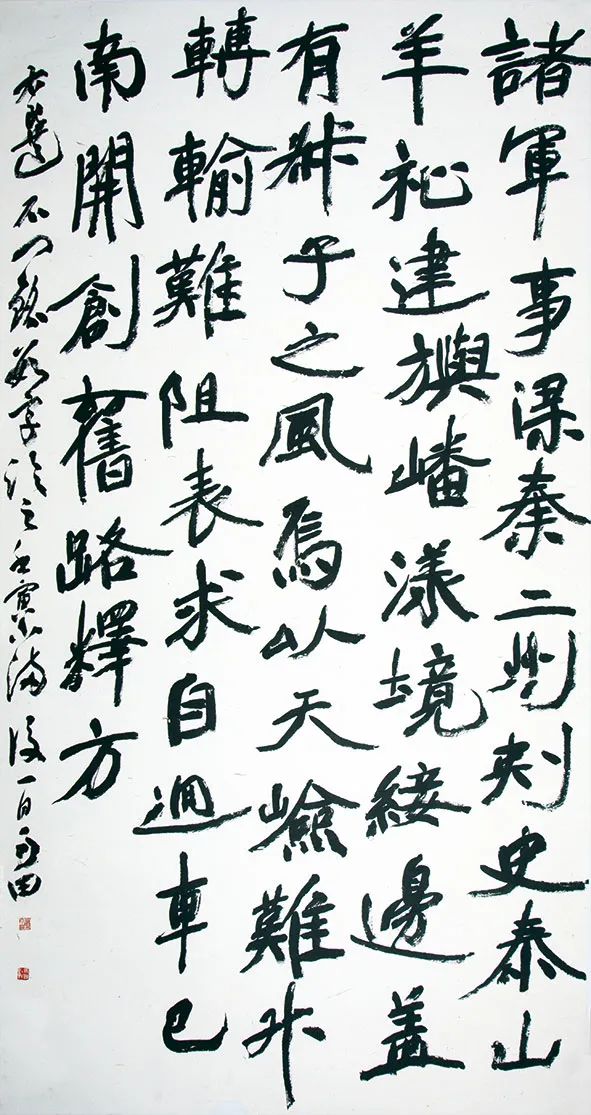 諸軍事梁秦二州刺史泰山
羊祉建旟嶓漾境綏邊蓋
有叔子之風焉以天嶮難升
轉輸難阻表求自迴車已
南開創舊路釋方
石门銘数字临之壬寅小满後一日